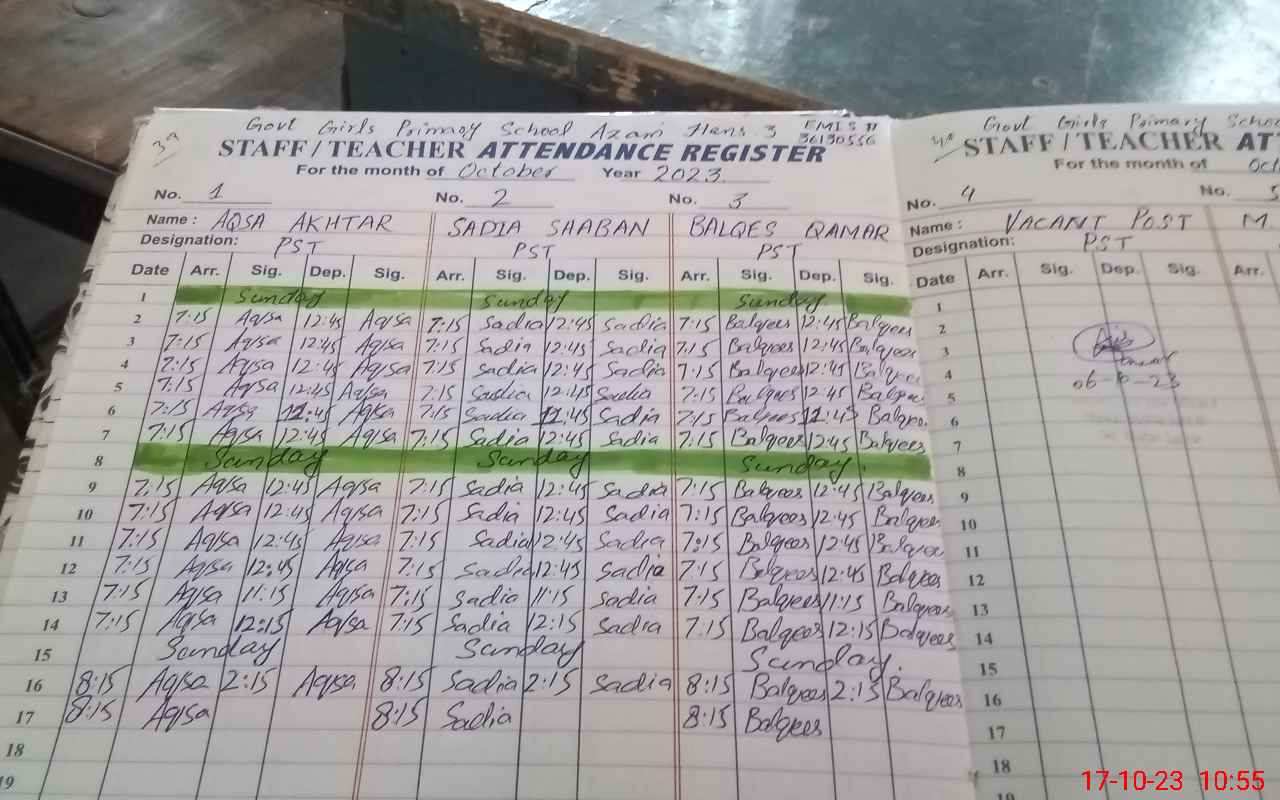 39 Govt Girls Primary School Azam Hans 3 EMIS # 36130556
STAFF/TEACHER ATTENDANCE REGISTER
For the month of October Year 2023
No. 1 No. 2 No. 3
Name : AQSA AKHTAR SADIA SHABAN BALQES QAMAR
Designation: PST PST PST
Date Arr. Sig. Dep. Sig. Arr. Sig. Dep. Sig. Arr. Sig. Dep. Sig.
1 Sunday Sunday Sunday
2 7:15 Aqsa 12:45 Aqsa 7:15 Sadia 12:45 Sadia 7:15 Balqees 12:45 Balqees
3 7:15 Aqsa 12:45 Aqsa 7:15 Sadia 12:45 Sadia 7:15 Balqees 12:45 Balqees
4 7:15 Aqsa 12:45 Aqsa 7:15 Sadia 12:45 Sadia 7:15 Balqees 12:45 Balqees
5 7:15 Aqsa 12:45 Aqsa 7:15 Sadia 12:45 Sadia 7:15 Balqees 12:45 Balqees
6 7:15 Aqsa 11:45 Aqsa 7:15 Sadia 11:45 Sadia 7:15 Balqees 11:45 Balqees
7 7:15 Aqsa 12:45 Aqsa 7:15 Sadia 12:45 Sadia 7:15 Balqees 12:45 Balqees
8 Sunday Sunday Sunday.
9 7:15 Aqsa 12:45 Aqsa 7:15 Sadia 12:45 Sadia 7:15 Balqees 12:45 Balqees
10 7:15 Aqsa 12:45 Aqsa 7:15 Sadia 12:45 Sadia 7:15 Balqees 12:45 Balqees
11 7:15 Aqsa 12:45 Aqsa 7:15 Sadia 12:45 Sadia 7:15 Balqees 12:45 Balqees
12 7:15 Aqsa 12:45 Aqsa 7:15 Sadia 12:45 Sadia 7:15 Balqees 12:45 Balqees
13 7:15 Aqsa 11:15 Aqsa 7:15 Sadia 11:15 Sadia 7:15 Balqees 11:15 Balqees
14 7:15 Aqsa 12:15 Aqsa 7:15 Sadia 12:15 Sadia 7:15 Balqees 12:15 Balqees
15 Sunday Sunday Sunday.
16 8:15 Aqsa 2:15 Aqsa 8:15 Sadia 2:15 Sadia 8:15 Balqees 2:15 Balqees
17 8:15 Aqsa 8:15 Sadia 8:15 Balqees
18
19
Govt Girls Primary School
STAFF/TEACHER AT
For the month of Oct
No. 4 No. 5
Name : VACANT POST M.
Designation: PST
Date Arr. Sig. Dep. Sig. Arr.
1
2
3
4
06-10-23
5
6
7
8
9
10
11
12
13
14
15
16
17
18
19
17-10-23 10:55